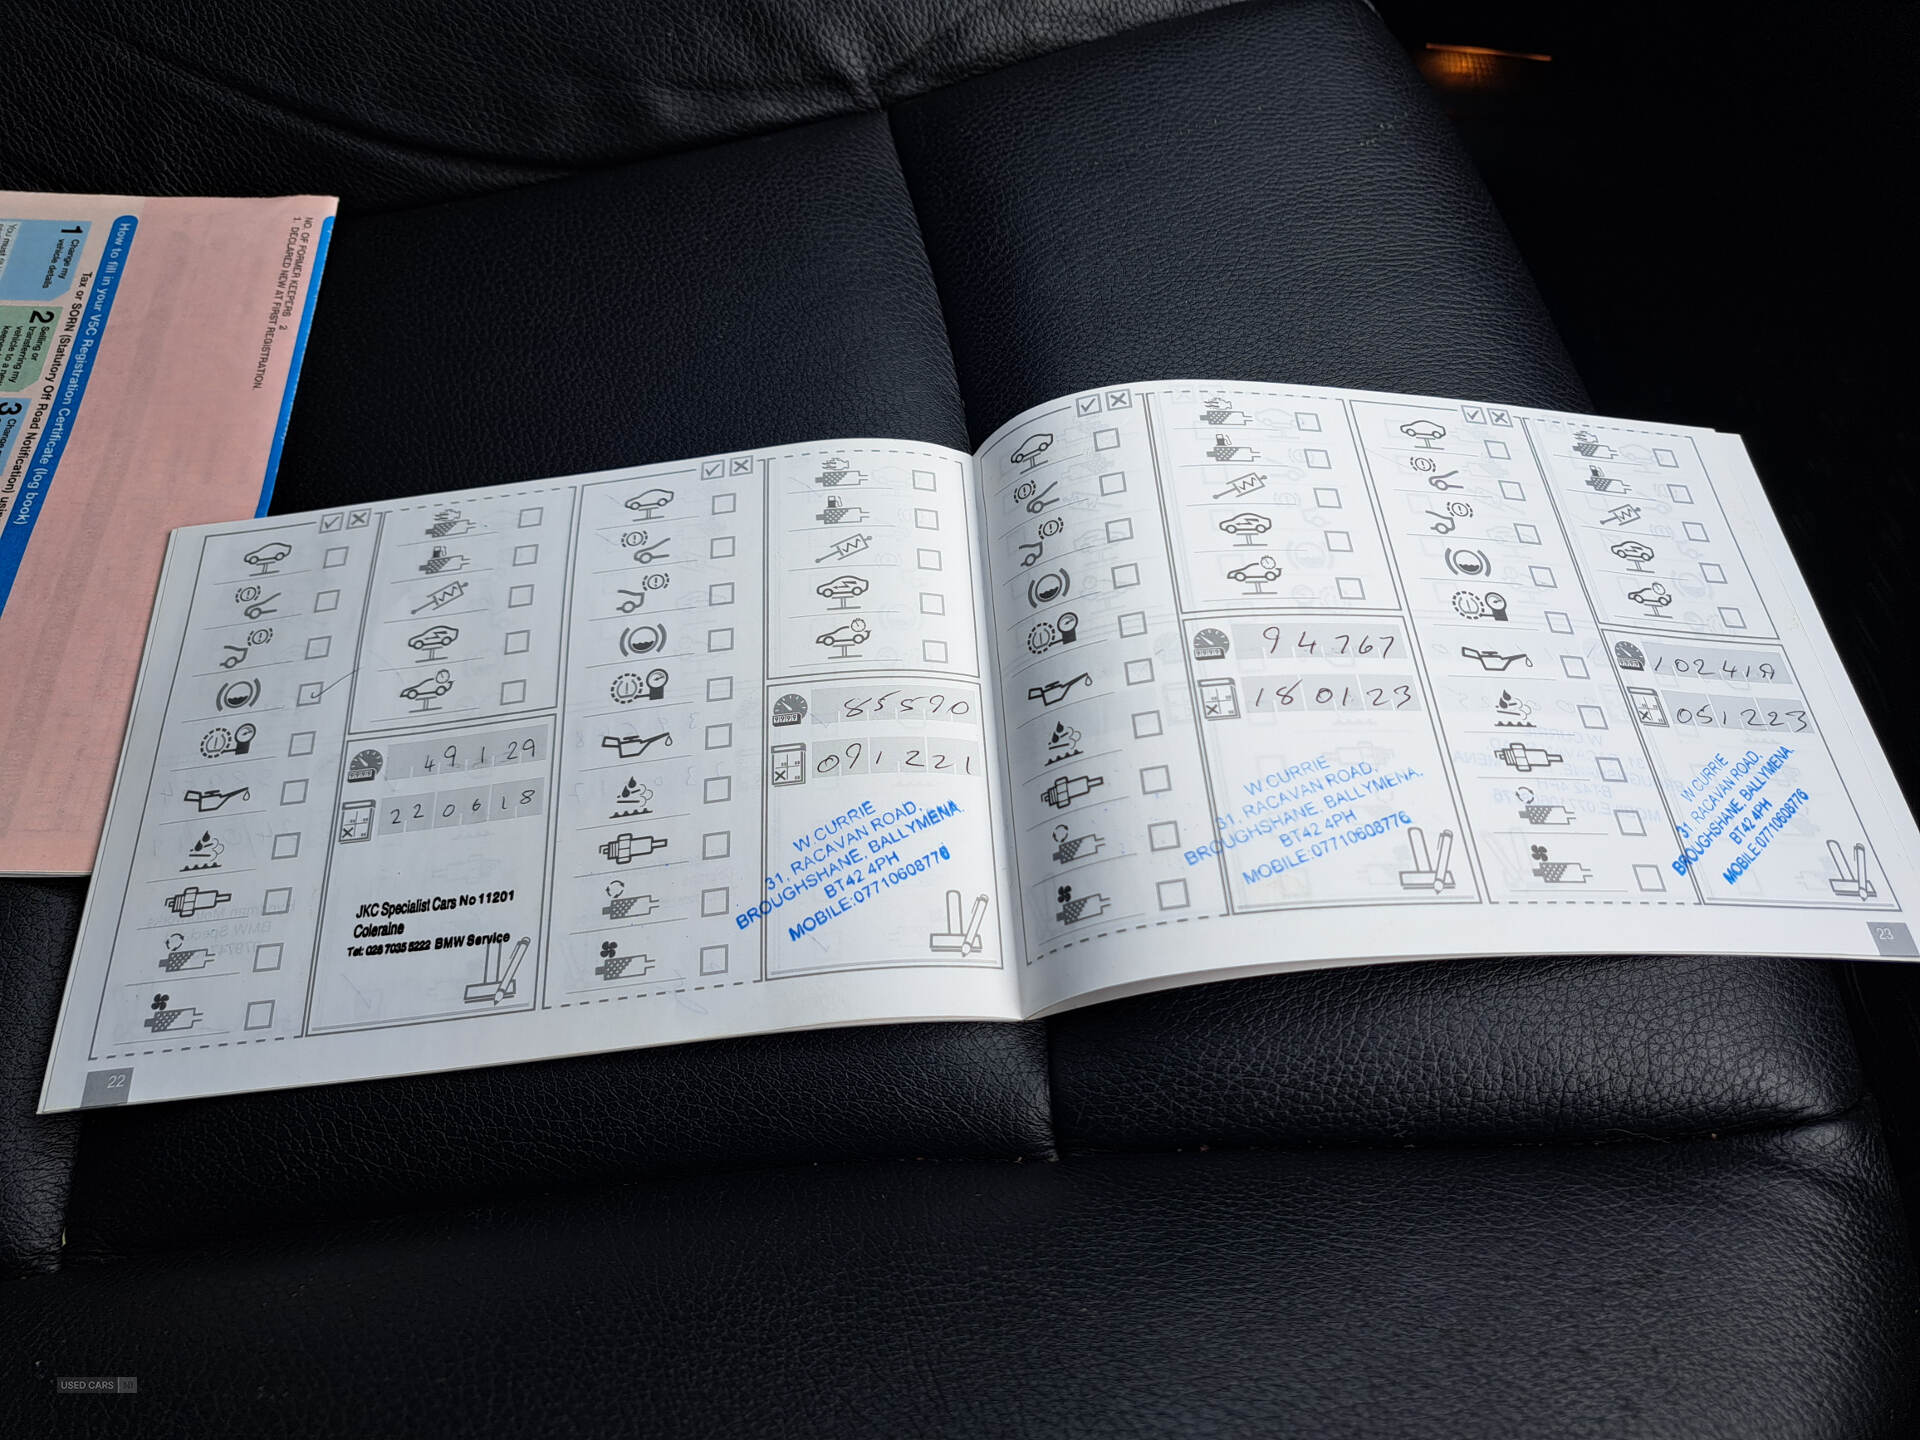 NO. OF FORMER KEEPERS 2
1. DECLARED NEW AT FIRST REGISTRATION.
How to fill in your V5C Registration Certificate (log book)
Tax or SORN (Statutory Off Road Notification)
1 Change my
vehicle details
You must
2 Selling or
transferring my
vehicle to a new
3
49129
220618
JKC Specialist Cars No 11201
Coleraine
Tel: 028 7035 5222 BMW Service
22
85590
091221
W.CURRIE
31, RACAVAN ROAD,
BROUGHSHANE, BALLYMENA.
BT42 4PH
MOBILE:07710608776
94767
180123
W.CURRIE
31, RACAVAN ROAD,
BROUGHSHANE, BALLYMENA.
BT42 4PH
MOBILE:07710608776
102419
051223
W.CURRIE
31, RACAVAN ROAD,
BROUGHSHANE, BALLYMENA.
BT42 4PH
MOBILE:07710608776
23
USED CARS NI